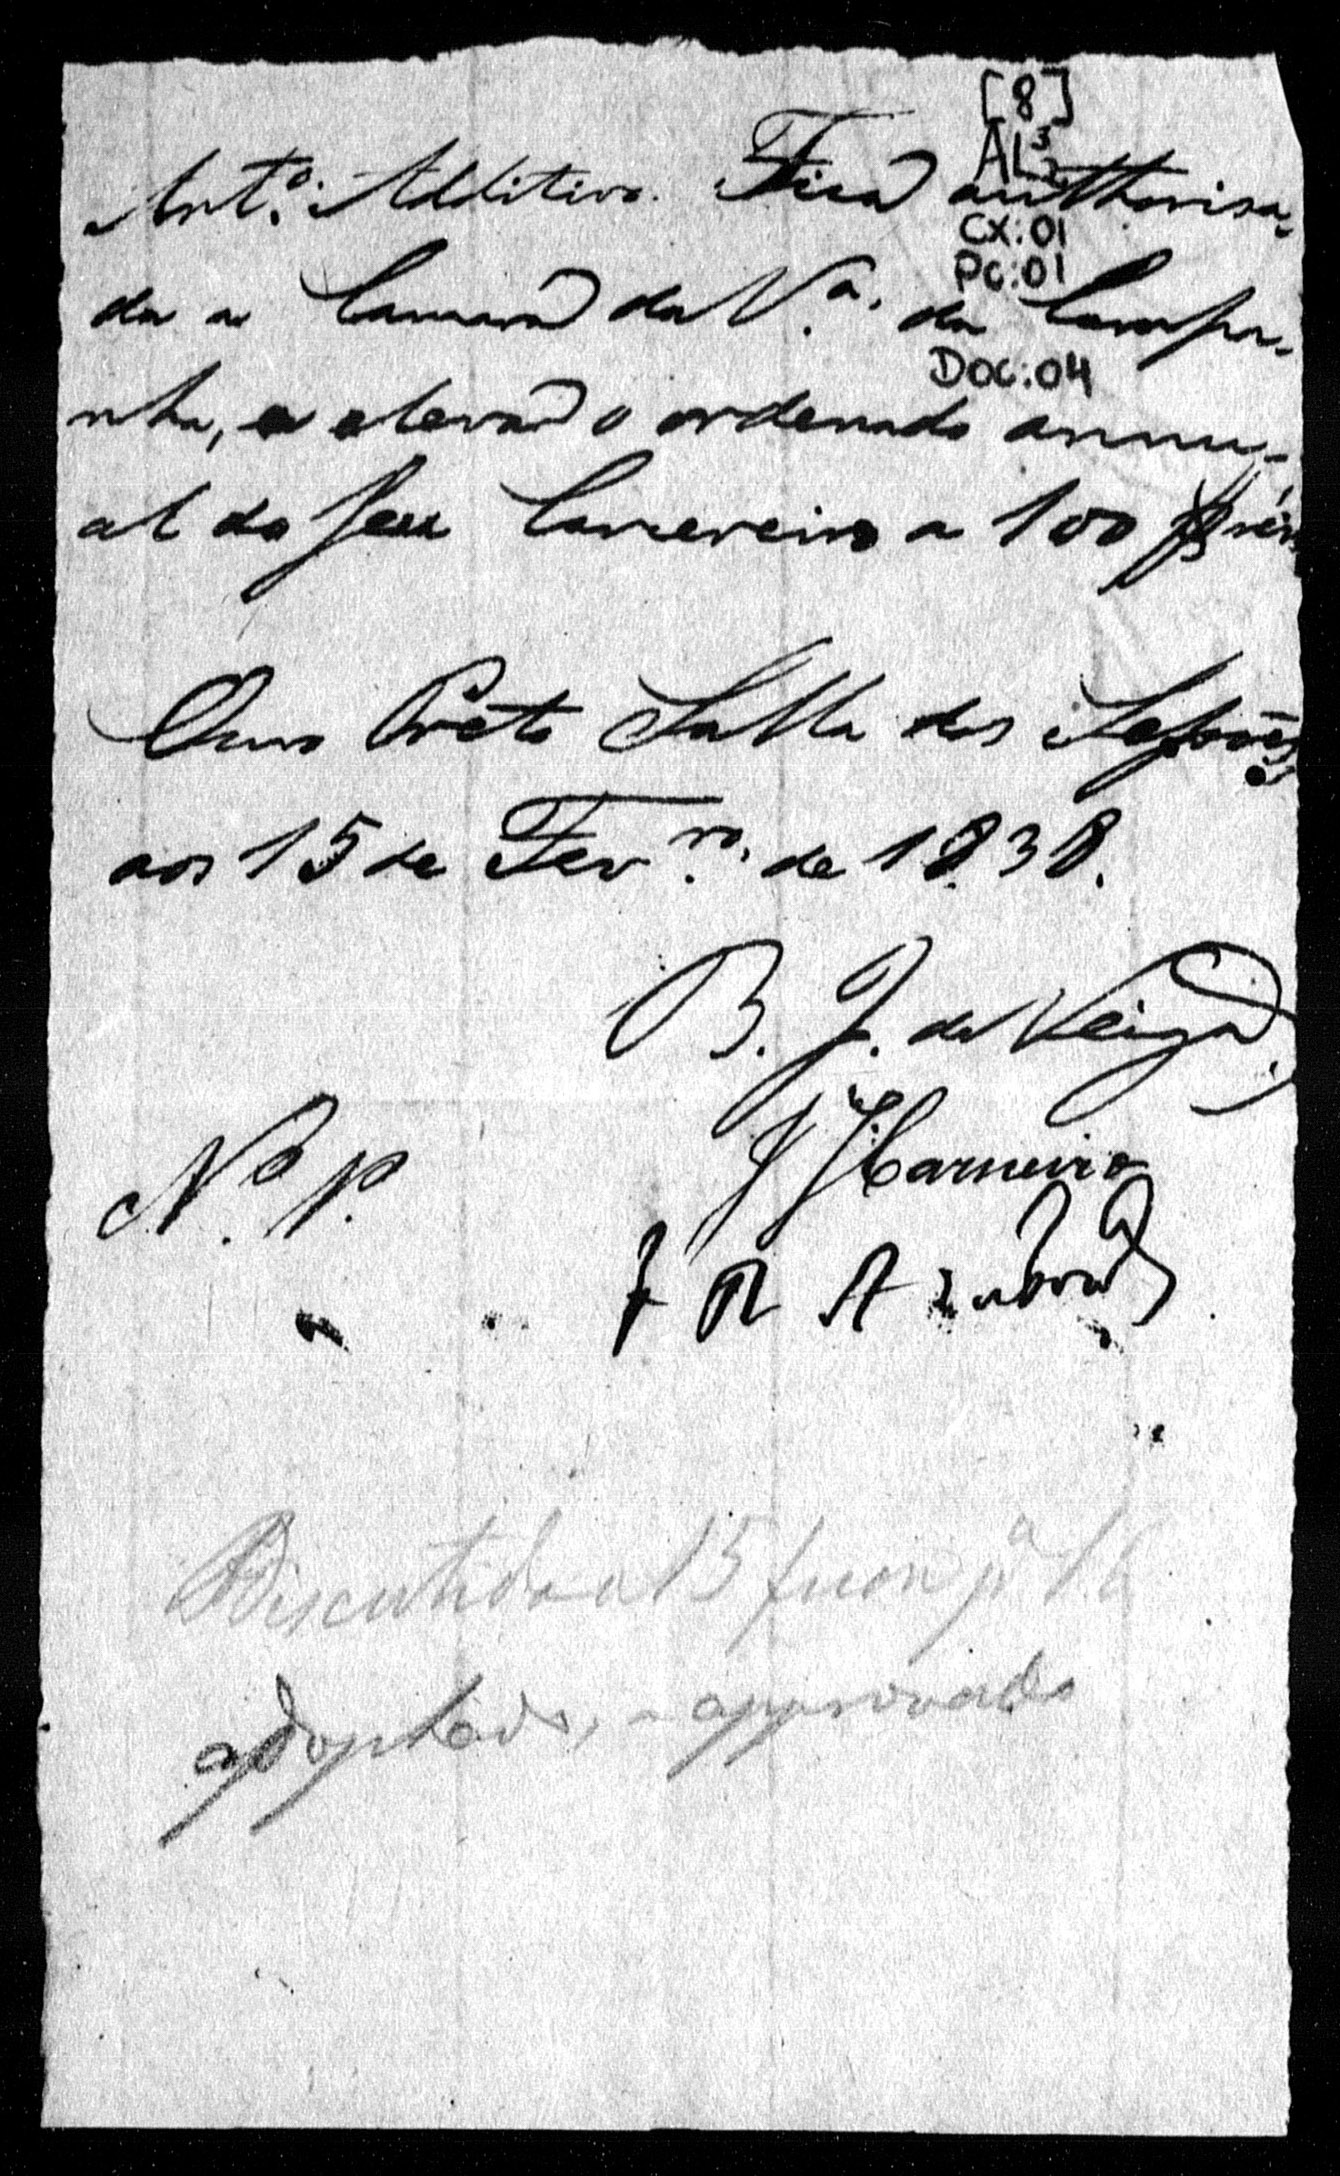 [8]
AL³
CX:01
PC:01
DOC:04
Artº. Additivo. Fica authorisa-
da a Camara da Vª. da Campa-
nha, a elevar o ordenado annu-
al do seu Carcereiro a 100$ reis
Ouro Preto Salla das Sessões
aos 15 de Fevro. de 1838.
B. J. da Veiga
J J Carneiro
N. P.
F R A
Discutido a 15 ficou pª 16
adoptado, approvado